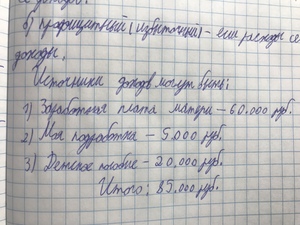 её доходов.
б) профицитный (избыточный) - если расходы се
доходы.
Источники доходов могут быть:
1) Заработная плата матери - 60.000 руб.
2) Моя подработка - 5.000 руб.
3) Детское пособие - 20.000 руб.
Итого: 85.000 руб.